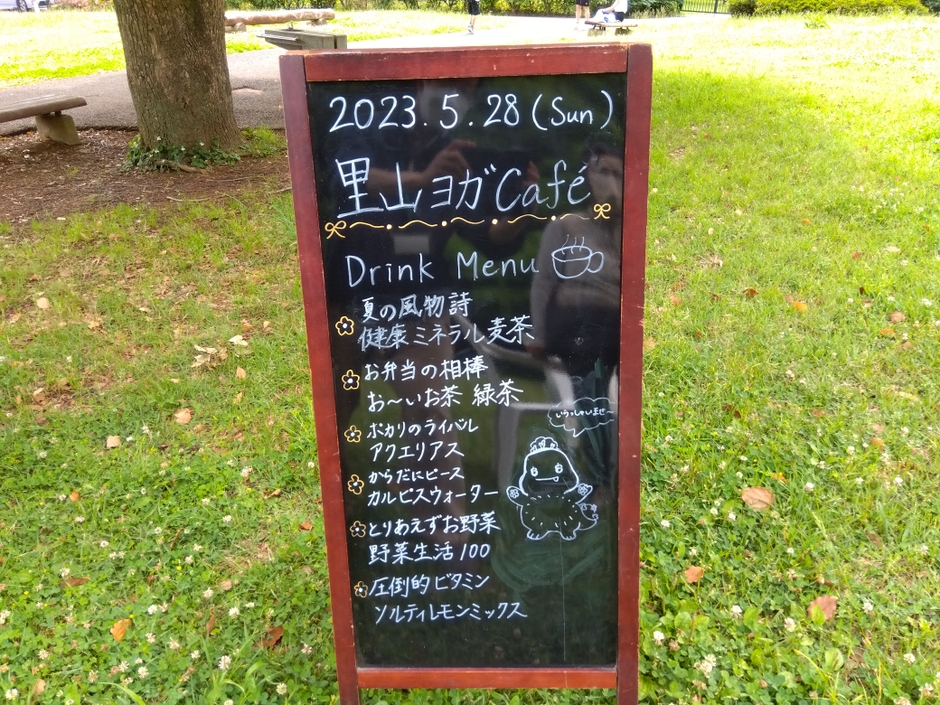 2023.5.28(Sun)
里山ヨガCafé
Drink Menu
夏の風物詩
健康ミネラル麦茶
お弁当の相棒
お〜いお茶 緑茶
ポカリのライバル
アクエリアス
からだにピース
カルピスウォーター
とりあえずお野菜
野菜生活100
圧倒的ビタミン
ソルティレモンミックス
いらっしゃいませ〜